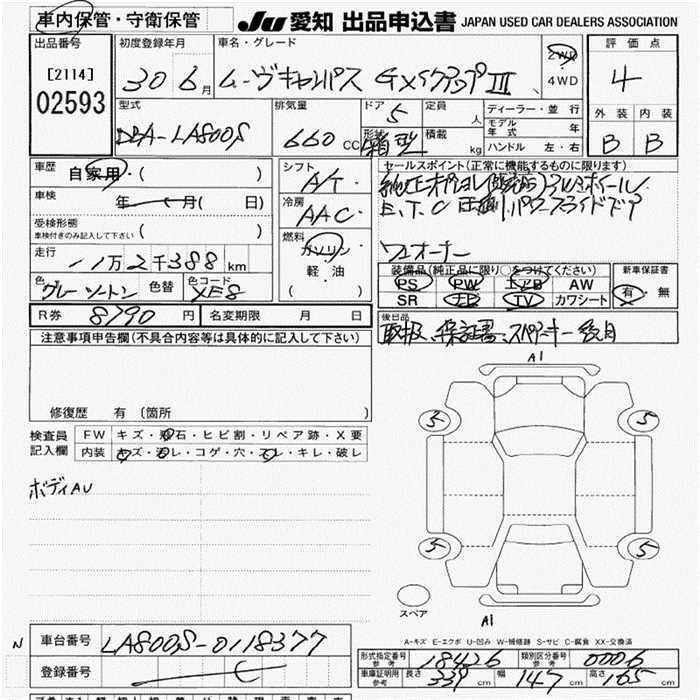 車内保管・守衛保管
JU 愛知 出品申込書 JAPAN USED CAR DEALERS ASSOCIATION
出品番号 [2114] 02593
初度登録年月 30 6月
車名・グレード ムーヴキャンバス GメイクアップⅢ
2WD 4WD
評価点 4
外装 B 内装 B
型式 DBA-LA800S
排気量 660 CC
ドア 5
形状 箱型
定員 人
積載 kg
ディーラー・並行
モデル年式 年
ハンドル 左・右
車歴 自家用 ( )
車検 年 月 ( 日)
受検形態 車検付きのみ記入して下さい ( )
走行 11万2千388km
色 グレーツートン 色替 色コード XE8
シフト A/T
冷房 AAC
燃料 ガソリン 軽・油 ( )
セールスポイント(正常に機能するものに限ります)
E.T.C 両側パワースライドドア
ワンオーナー
装備品(純正品に限り○をつけてください)
PS PW エアB AW
SR ナビ TV カワシート
新車保証書 有・無
R券 8790円 名変期限 月 日
後日品
取扱、保証書、スペアキー後日
注意事項申告欄(不具合内容等は具体的に記入して下さい)
修復歴 有 〔箇所 〕
検査員記入欄 FW キズ・飛石・ヒビ割・リペア跡・X要
内装 キズ・汚レ・コゲ・穴・スレ・キレ・破レ
ボディAU
A1
5 5
5 5
スペア
A1
A-キズ E-エクボ U-凹み W-補修跡 S-サビ C-腐食 XX-交換済
N 車台番号 LA800S-0118377
登録番号
形式指定番号 参考 18426 類別区分番号 参考 0006
車庫証明用 参考 長さ 339cm 幅 147cm 高さ 165cm